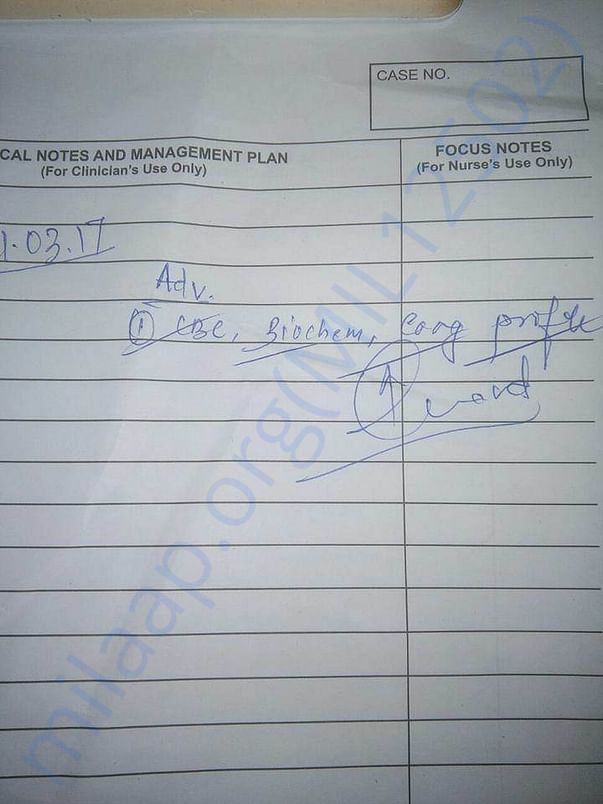 CASE NO.
CAL NOTES AND MANAGEMENT PLAN
(For Clinician's Use Only)
FOCUS NOTES
(For Nurse's Use Only)
1.03.17
Adv.
① CBC, Biochem, Coag profile
↑ ward
milaap.org(MIL12502)